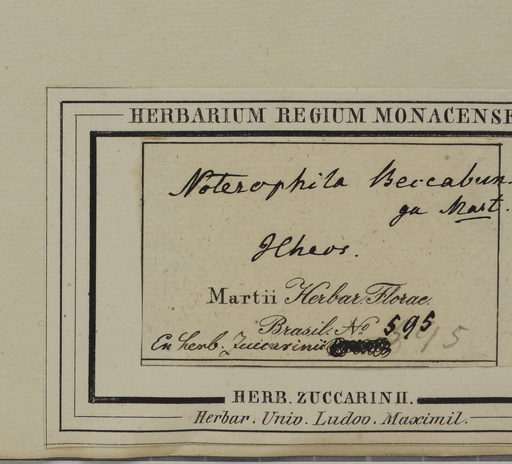 HERBARIUM REGIUM MONACENSE
Noterophila Beccabun
ga Mart.
Ilheos.
Martii Herbar. Florae
Brasil. No 595
Ex herb. Zuccarinii
HERB. ZUCCARINII.
Herbar. Univ. Ludov. Maximil.